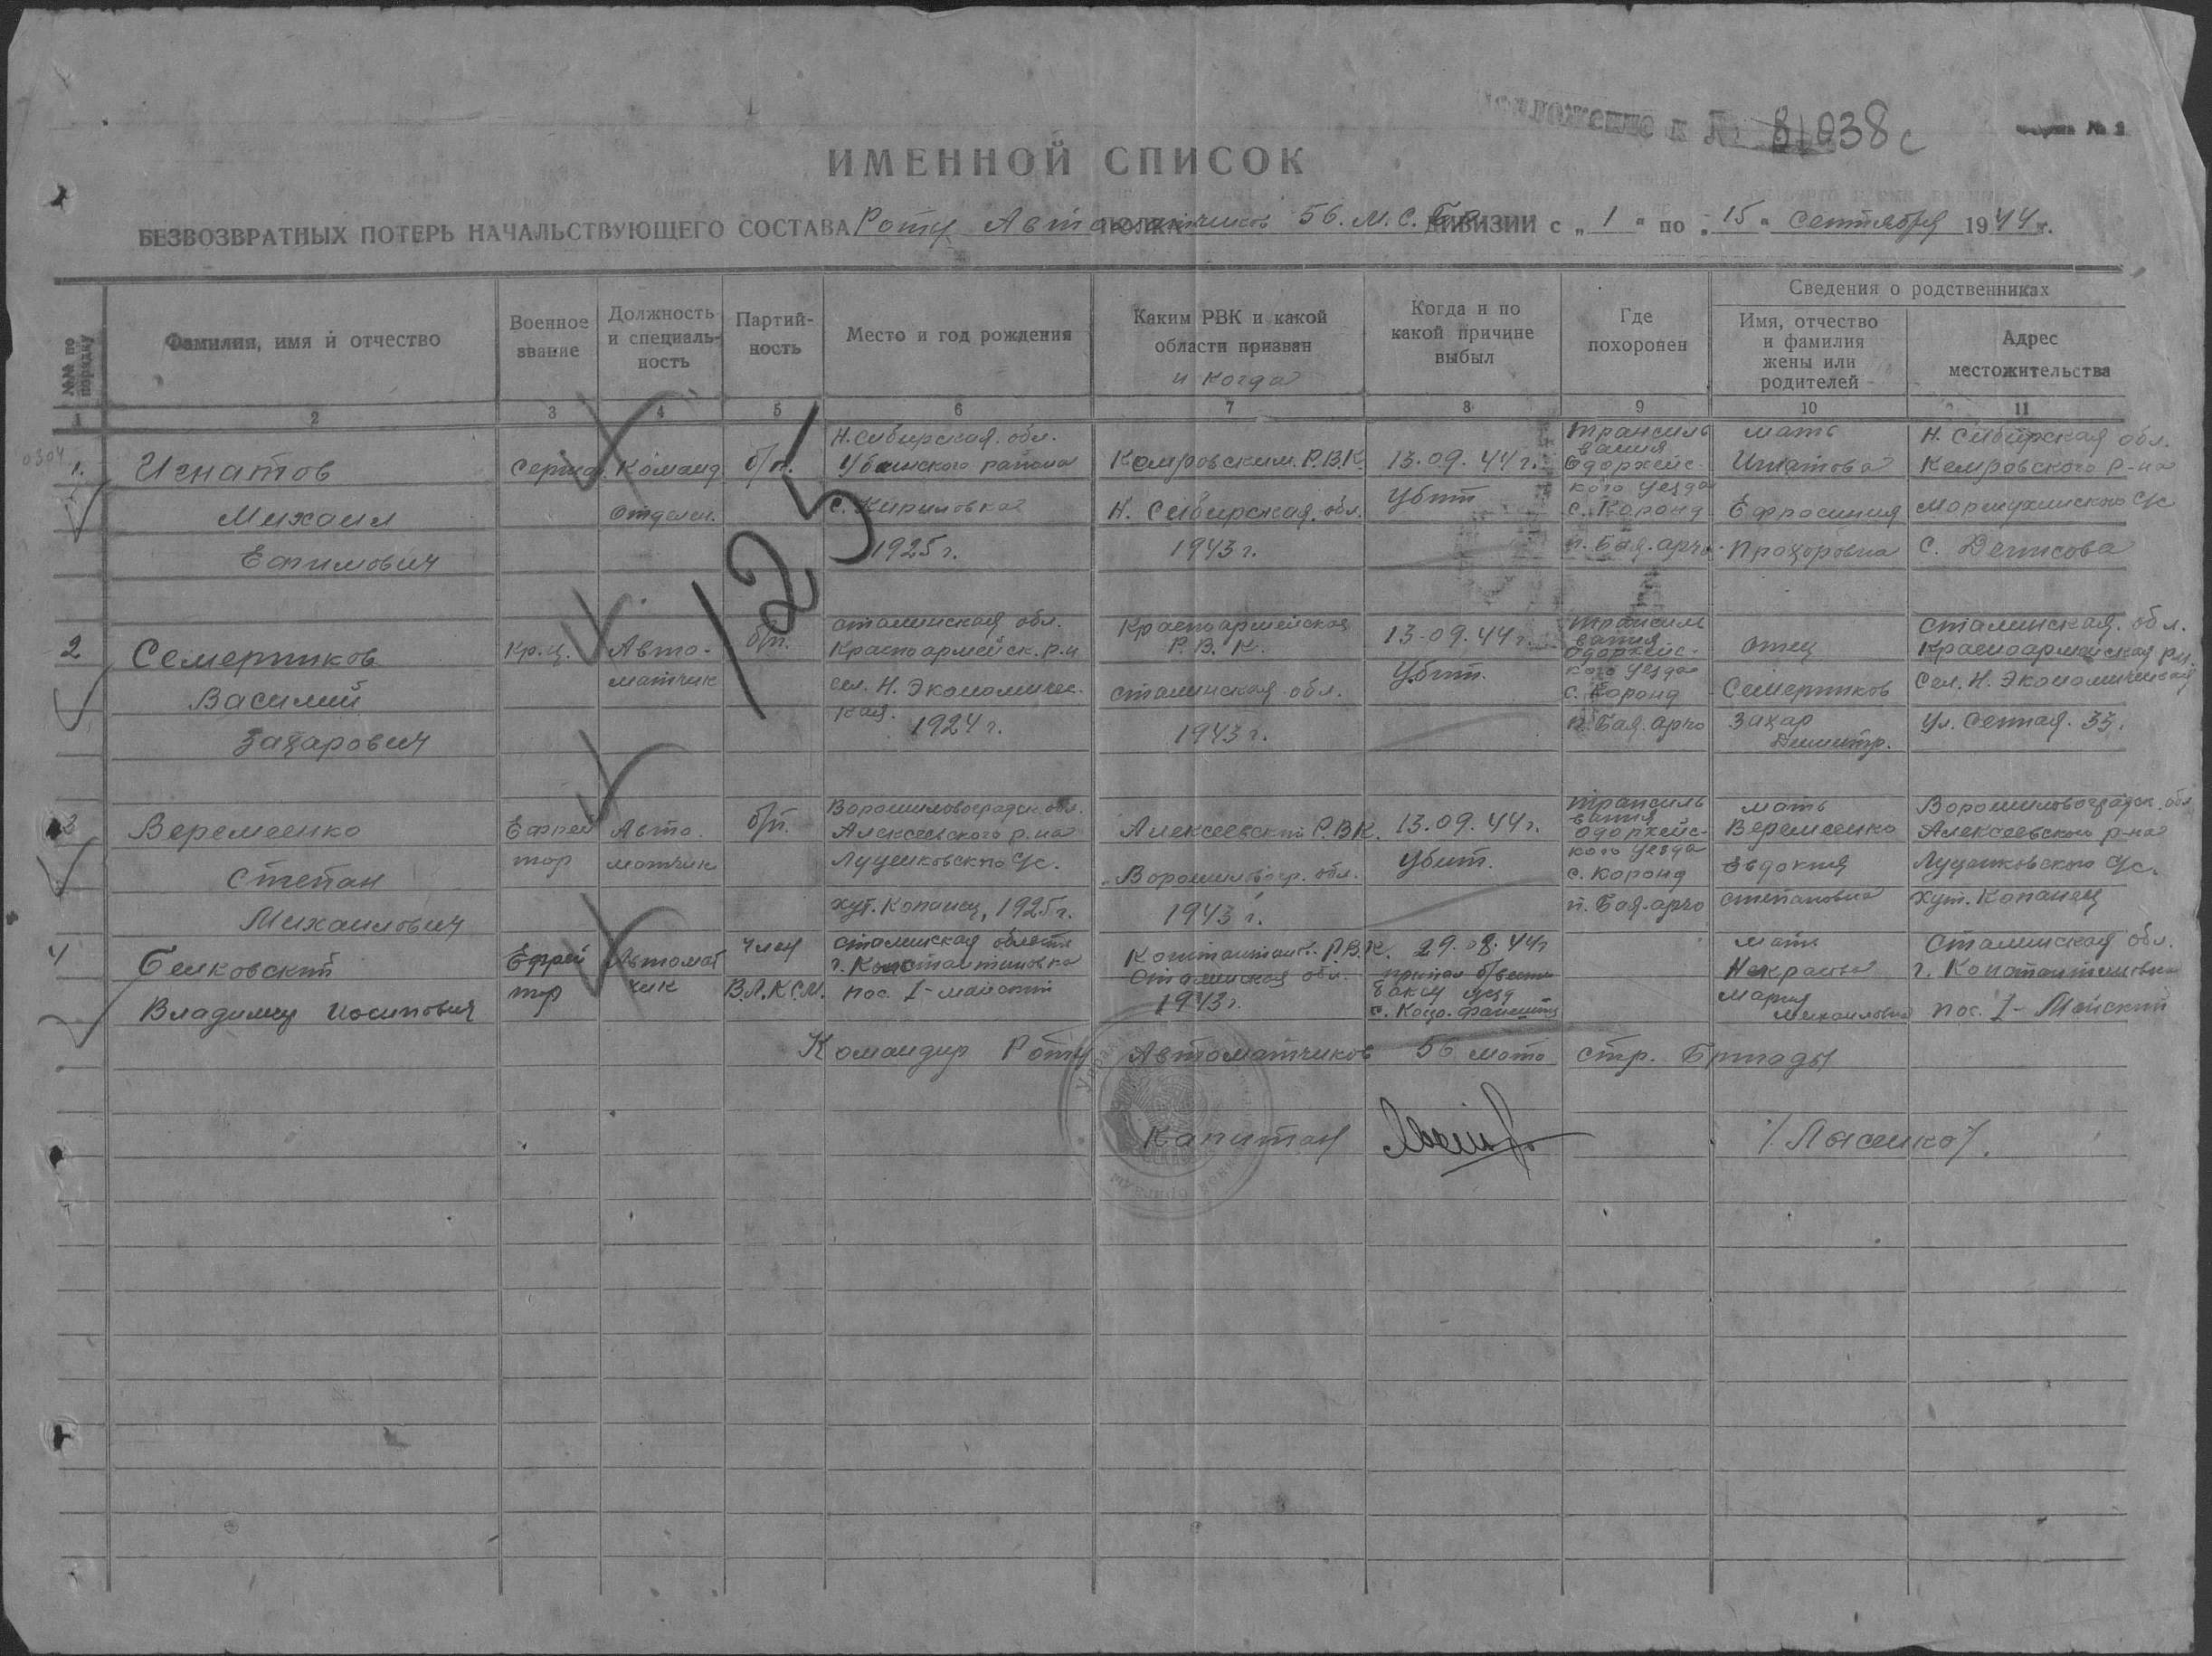 приложение к № 81038с
Форма № 2
ИМЕННОЙ СПИСОК
БЕЗВОЗВРАТНЫХ ПОТЕРЬ НАЧАЛЬСТВУЮЩЕГО СОСТАВА Роты Автоматчиков ПОЛКА 56. М. С. Бр ДИВИЗИИ с „1“ по „15“ сентября 1944 г.
№№ по порядку
Фамилия, имя и отчество
Военное звание
Должность и специаль-ность
Партий-ность
Место и год рождения
Каким РВК и какой области призван и когда
Когда и по какой причине выбыл
Где похоронен
Сведения о родственниках
Имя, отчество и фамилия жены или родителей
Адрес местожительства
1 2 3 4 5 6 7 8 9 10 11
0304
125
1. Игнатов Михаил Ефимович
Сержа. Команд. отделен. б/п.
Н. Сибирская. обл. Убинского района с. Кириловка 1925 г.
Кемровским. Р.В.К. Н. Сибирская. обл. 1943 г.
13.09.44 г. Убит
Трансиль вания Одорхейс-кого уезда с. Коронд п. Бая. арчо.
мать Игнатова Ефросиния Прохоровна
Н. Сибирская обл. Кемровского р-на с/с с. Денисова
2 Семерников Василий Захарович
Кр-ц. Авто-матчик б/п.
Сталинская обл. Красноармейск. р-н сел. Н. Экономичес-кая. 1924 г.
Красноармейская Р. В. К. Сталинская обл. 1943 г.
13.09.44 г. Убит.
Трансиль вания Одорхейс-кого уезда с. Коронд п. Бая. арчо
отец Семерников Захар Димитр.
Сталинская. обл. Красноармейская р-н. Сел. Н. Экономическая ул. Сенная. 33.
3 Веремеенко Степан Михаилович
Ефрей тор Авто. матчик б/п.
Ворошиловоградск. обл. Алексеевского р-на Луценковского с/с. хут. Копанец, 1925 г.
Алексеевский Р.В.К. Ворошиловогр. обл. 1943 г.
13.09.44 г. убит.
Трансиль вания Одорхейс-кого уезда с. Коронд п. Бая. арчо
мать Веремеенко Евдокия Степановна
Ворошиловоградск. обл Алексеевского р-на Луценковского с/с. хут. Копанец
4 Бенковский Владимир Иосипович
Ефрей тор Автомат чик член В.Л.К.С.М.
Сталинская область г. Константиновка пос. 1-майский
Константинов. Р.В.К. Сталинская обл. 1943 г.
29.08.44 г пропал б/вести
мать Некрасова Мария Михаиловна
Сталинская обл. г. Константиновка пос. 1-Майский
Командир Роты Автоматчиков 56 мото стр. Бригады
Капитан /Лысенко/.